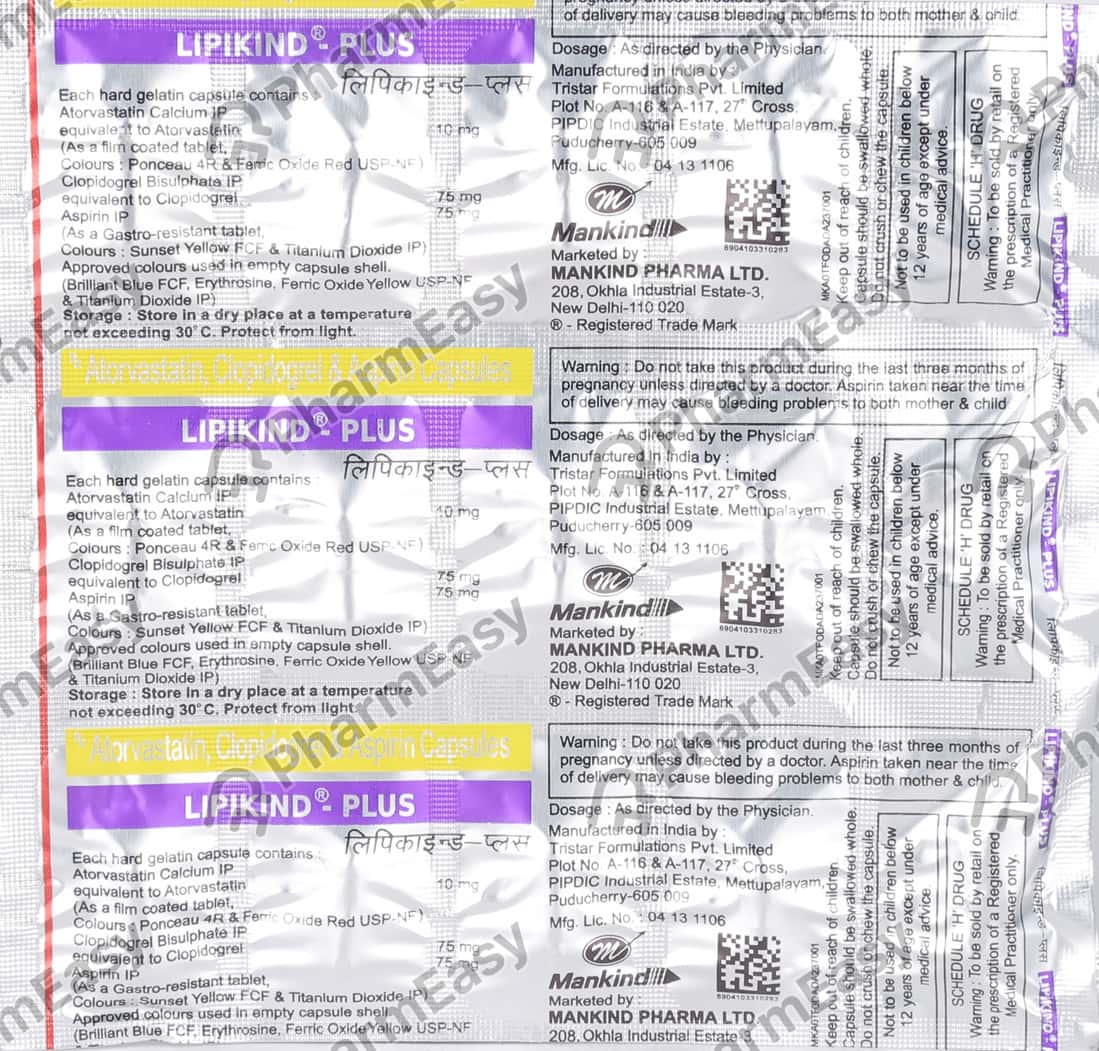 pregnancy unless directed by
of delivery may cause bleeding problems to both mother & child.
LIPIKIND® - PLUS
लिपिकाइन्ड-प्लस
Each hard gelatin capsule contains :
Atorvastatin Calcium IP
equivalent to Atorvastatin 10 mg
(As a film coated tablet,
Colours : Ponceau 4R & Ferric Oxide Red USP-NF)
Clopidogrel Bisulphate IP
equivalent to Clopidogrel 75 mg
Aspirin IP 75 mg
(As a Gastro-resistant tablet,
Colours : Sunset Yellow FCF & Titanium Dioxide IP)
Approved colours used in empty capsule shell.
(Brilliant Blue FCF, Erythrosine, Ferric Oxide Yellow USP-NF
& Titanium Dioxide IP)
Storage : Store in a dry place at a temperature
not exceeding 30°C. Protect from light.
Dosage : As directed by the Physician.
Manufactured in India by :
Tristar Formulations Pvt. Limited
Plot No. A-116 & A-117, 27° Cross,
PIPDIC Industrial Estate, Mettupalayam,
Puducherry-605 009
Mfg. Lic. No. : 04 13 1106
m
Mankind
Marketed by :
MANKIND PHARMA LTD.
208, Okhla Industrial Estate-3,
New Delhi-110 020
® - Registered Trade Mark
8904103310283
MKAOTFODA/A237/001
Keep out of reach of children.
Capsule should be swallowed whole.
Do not crush or chew the capsule.
Not to be used in children below
12 years of age except under
medical advice.
SCHEDULE 'H' DRUG
Warning : To be sold by retail on
the prescription of a Registered
Medical Practitioner only.
PLUS
LIPIKIND® - PLUS
Rx Atorvastatin, Clopidogrel & Aspirin Capsules
LIPIKIND® - PLUS
लिपिकाइन्ड-प्लस
Each hard gelatin capsule contains :
Atorvastatin Calcium IP
equivalent to Atorvastatin 10 mg
(As a film coated tablet,
Colours : Ponceau 4R & Ferric Oxide Red USP-NF)
Clopidogrel Bisulphate IP
equivalent to Clopidogrel 75 mg
Aspirin IP 75 mg
(As a Gastro-resistant tablet,
Colours : Sunset Yellow FCF & Titanium Dioxide IP)
Approved colours used in empty capsule shell.
(Brilliant Blue FCF, Erythrosine, Ferric Oxide Yellow USP-NF
& Titanium Dioxide IP)
Storage : Store in a dry place at a temperature
not exceeding 30°C. Protect from light.
Warning : Do not take this product during the last three months of
pregnancy unless directed by a doctor. Aspirin taken near the time
of delivery may cause bleeding problems to both mother & child
Dosage : As directed by the Physician.
Manufactured in India by :
Tristar Formulations Pvt. Limited
Plot No. A-116 & A-117, 27° Cross,
PIPDIC Industrial Estate, Mettupalayam,
Puducherry-605 009
Mfg. Lic. No. : 04 13 1106
m
Mankind
Marketed by :
MANKIND PHARMA LTD.
208, Okhla Industrial Estate-3,
New Delhi-110 020
® - Registered Trade Mark
8904103310283
MKAOTFODA/A237/001
Keep out of reach of children.
Capsule should be swallowed whole.
Do not crush or chew the capsule.
Not to be used in children below
12 years of age except under
medical advice.
SCHEDULE 'H' DRUG
Warning : To be sold by retail on
the prescription of a Registered
Medical Practitioner only.
LIPIKIND® - PLUS
Rx Atorvastatin, Clopidogrel & Aspirin Capsules
LIPIKIND® - PLUS
लिपिकाइन्ड-प्लस
Each hard gelatin capsule contains :
Atorvastatin Calcium IP
equivalent to Atorvastatin 10 mg
(As a film coated tablet,
Colours : Ponceau 4R & Ferric Oxide Red USP-NF)
Clopidogrel Bisulphate IP
equivalent to Clopidogrel 75 mg
Aspirin IP 75 mg
(As a Gastro-resistant tablet,
Colours : Sunset Yellow FCF & Titanium Dioxide IP)
Approved colours used in empty capsule shell.
(Brilliant Blue FCF, Erythrosine, Ferric Oxide Yellow USP-NF
Warning : Do not take this product during the last three months of
pregnancy unless directed by a doctor. Aspirin taken near the time
of delivery may cause bleeding problems to both mother & child.
Dosage : As directed by the Physician.
Manufactured in India by :
Tristar Formulations Pvt. Limited
Plot No A-116 & A-117, 27° Cross,
PIPDIC Industrial Estate, Mettupalayam,
Puducherry-605 009
Mfg. Lic. No. : 04 13 1106
m
Mankind
Marketed by :
MANKIND PHARMA LTD.
208, Okhla Industrial Estate-3,
8904103310283
MKAOTFODA/A237/001
Keep out of reach of children
Capsule should be swallowed whole.
Do not crush or chew the capsule.
Not to be used in children below
12 years of age except under
medical advice
SCHEDULE 'H' DRUG
Warning : To be sold by retail on
the prescription of a Registered
Medical Practitioner only.
LIPIKIND® - PLUS
LIPIKIND®
PharmEasy
PharmEasy
PharmEasy
PharmEasy